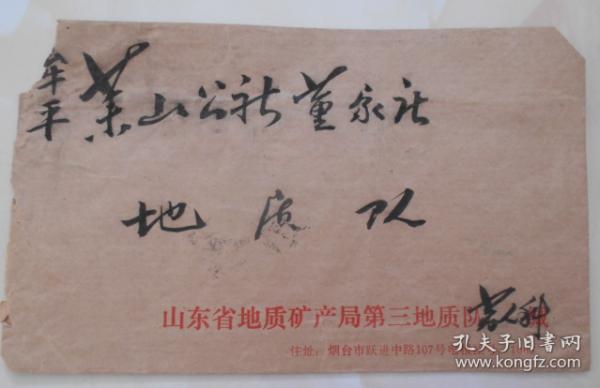 牟平
莱山公社董家社
地质队
山东省地质矿产局第三地质队
住址:烟台市跃进中路107号
孔夫子旧书网
www.kongfz.com